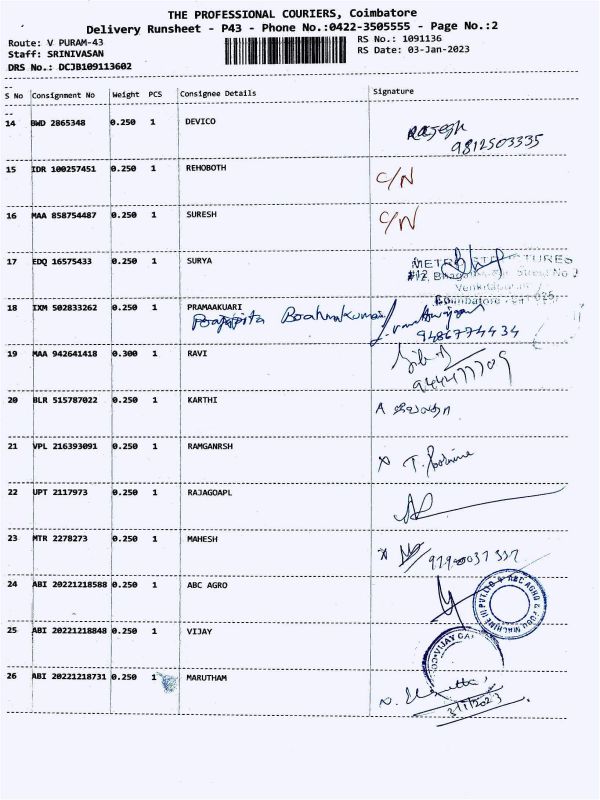 THE PROFESSIONAL COURIERS, Coimbatore
Delivery Runsheet - P43 - Phone No.:0422-3505555 - Page No.:2
Route: V PURAM-43
RS No.: 1091136
Staff: SRINIVASAN
RS Date: 03-Jan-2023
DRS No.: DCJB109113602
S No Consignment No Weight PCS Consignee Details Signature
14 BWD 2865348 0.250 1 DEVICO
Rajesh
9812503335
15 IDR 100257451 0.250 1 REHOBOTH C/N
16 MAA 858754487 0.250 1 SURESH C/N
17 EDQ 16575433 0.250 1 SURYA
18 IXM 502833262 0.250 1 PRAMAAKUARI
9486774434
19 MAA 942641418 0.300 1 RAVI
20 BLR 515787022 0.250 1 KARTHI
21 VPL 216393091 0.250 1 RAMGANRSH
22 UPT 2117973 0.250 1 RAJAGOAPL
23 MTR 2278273 0.250 1 MAHESH
24 ABI 20221218588 0.250 1 ABC AGRO
25 ABI 20221218848 0.250 1 VIJAY
26 ABI 20221218731 0.250 1 MARUTHAM
3/1/2023